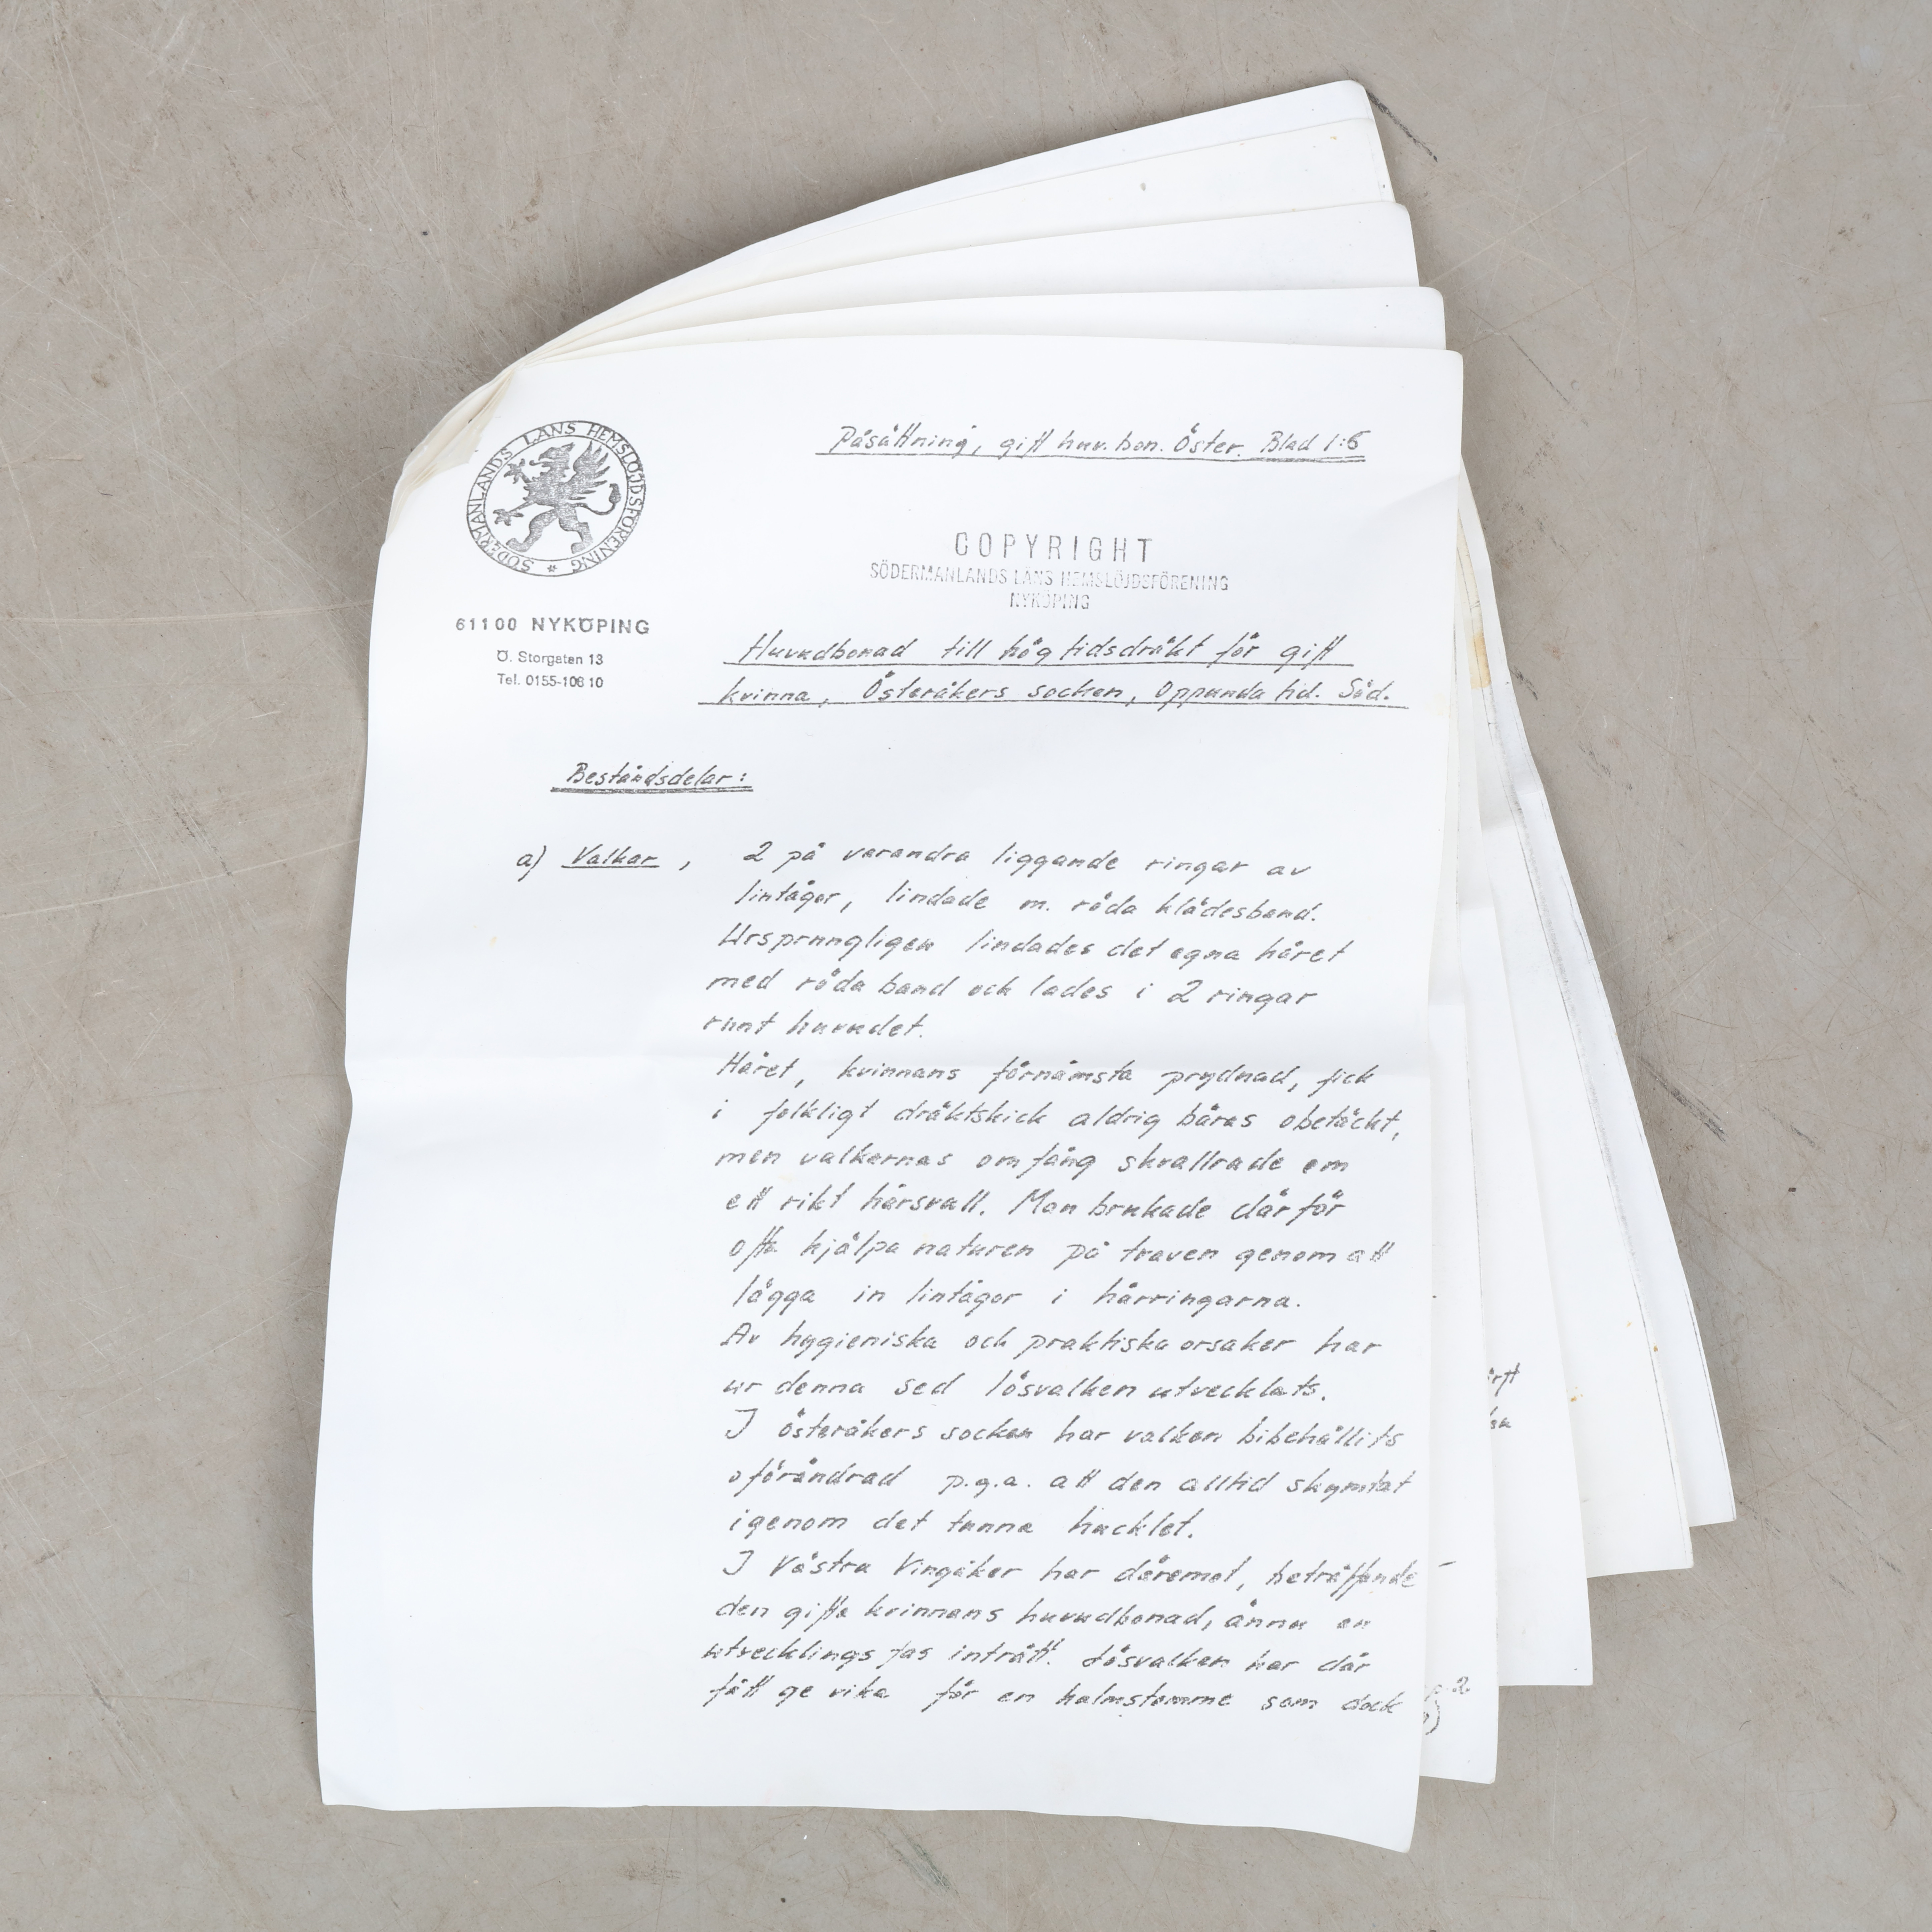 SÖDERMANLANDS LÄNS HEMSLÖJDSFÖRENING *
Påsättning, gift huv.bon. Öster. Blad 1:6
COPYRIGHT
SÖDERMANLANDS LÄNS HEMSLÖJDSFÖRENING
NYKÖPING
61100 NYKÖPING
Ö. Storgatan 13
Tel. 0155-106 10
Huvudbonad till högtidsdräkt för gift
kvinna, Österåkers socken, Oppunda hd. Söd.
Beståndsdelar:
a) Valkar, 2 på varandra liggande ringar av
lintågor, lindade m. röda klädesband.
Ursprungligen lindades det egna håret
med röda band och lades i 2 ringar
runt huvudet.
Håret, kvinnans förnämsta prydnad, fick
i folkligt dräktskick aldrig bäras obetäckt,
men valkarnas omfång skvallrade om
ett rikt hårsvall. Man brukade därför
ofta hjälpa naturen på traven genom att
lägga in lintågor i hårringarna.
Av hygieniska och praktiska orsaker har
ur denna sed lösvalken utvecklats.
I Österåkers socken har valken bibehållits
oförändrad p.g.a. att den alltid skymtat
igenom det tunna hucklet.
I Västra Vingåker har däremot, beträffande
den gifta kvinnans huvudbonad, ännu en
utvecklingsfas inträtt. Lösvalken har där
fått ge vika för en halmstomme som dock